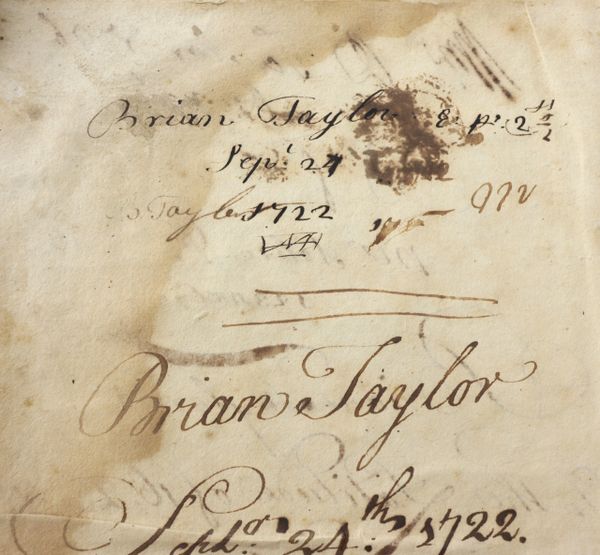 Brian Taylor
Sepr. 24
B Taylor 1722
Brian Taylor
Septr. 24th. 1722.